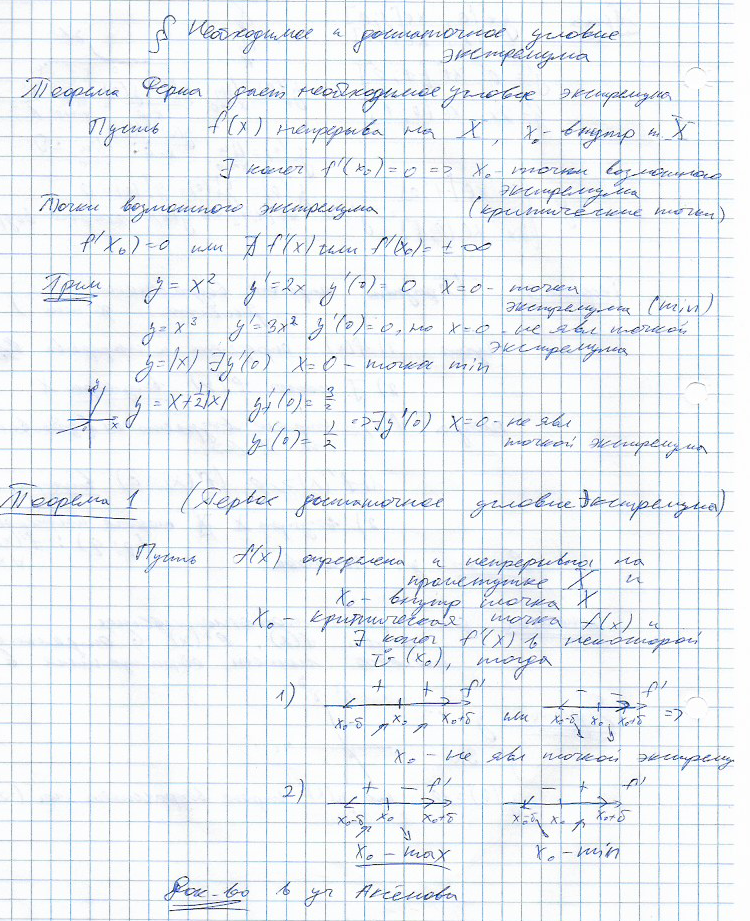 § Необходимое и достаточное условие
экстремума
Теорема Ферма даст необходимое условие экстремума
Пусть f(x) непрерыва на X, x₀ - внутр т. X
∃ конеч f'(x₀) = 0 => x₀ - точки возможного
экстремума
Точки возможного экстремума (критические точки)
f'(x₀) = 0 или ∄ f'(x) или f'(x₀) = ± ∞
Прим y = x² y' = 2x y'(0) = 0 x = 0 - точка
экстремума (min)
y = x³ y' = 3x² y'(0) = 0, но x = 0 - не явл точкой
экстремума
y = |x| ∄ y'(0) x = 0 - точка min
y x y = x + 1/2|x| y'₊(0) = 3/2
y'₋(0) = 1/2 => ∄ y'(0) x = 0 - не явл
точкой экстремума
Теорема 1 (Первое достаточное условие экстремума)
Пусть f(x) определена и непрерывна на
промежутке X и
x₀ - внутр точка X
x₀ - критическая точка f(x) и
∃ конеч f'(x) в некоторой
(x₀), тогда
1) + + f' или - - f' =>
x₀-δ ↗ x₀ ↗ x₀+δ x₀-δ ↘ x₀ ↘ x₀+δ
x₀ - не явл точкой экстрему
2) + - f' - + f'
x₀-δ ↗ x₀ ↘ x₀+δ x₀-δ ↘ x₀ ↗ x₀+δ
x₀ - max x₀ - min
Док-во в уч Аксёнова